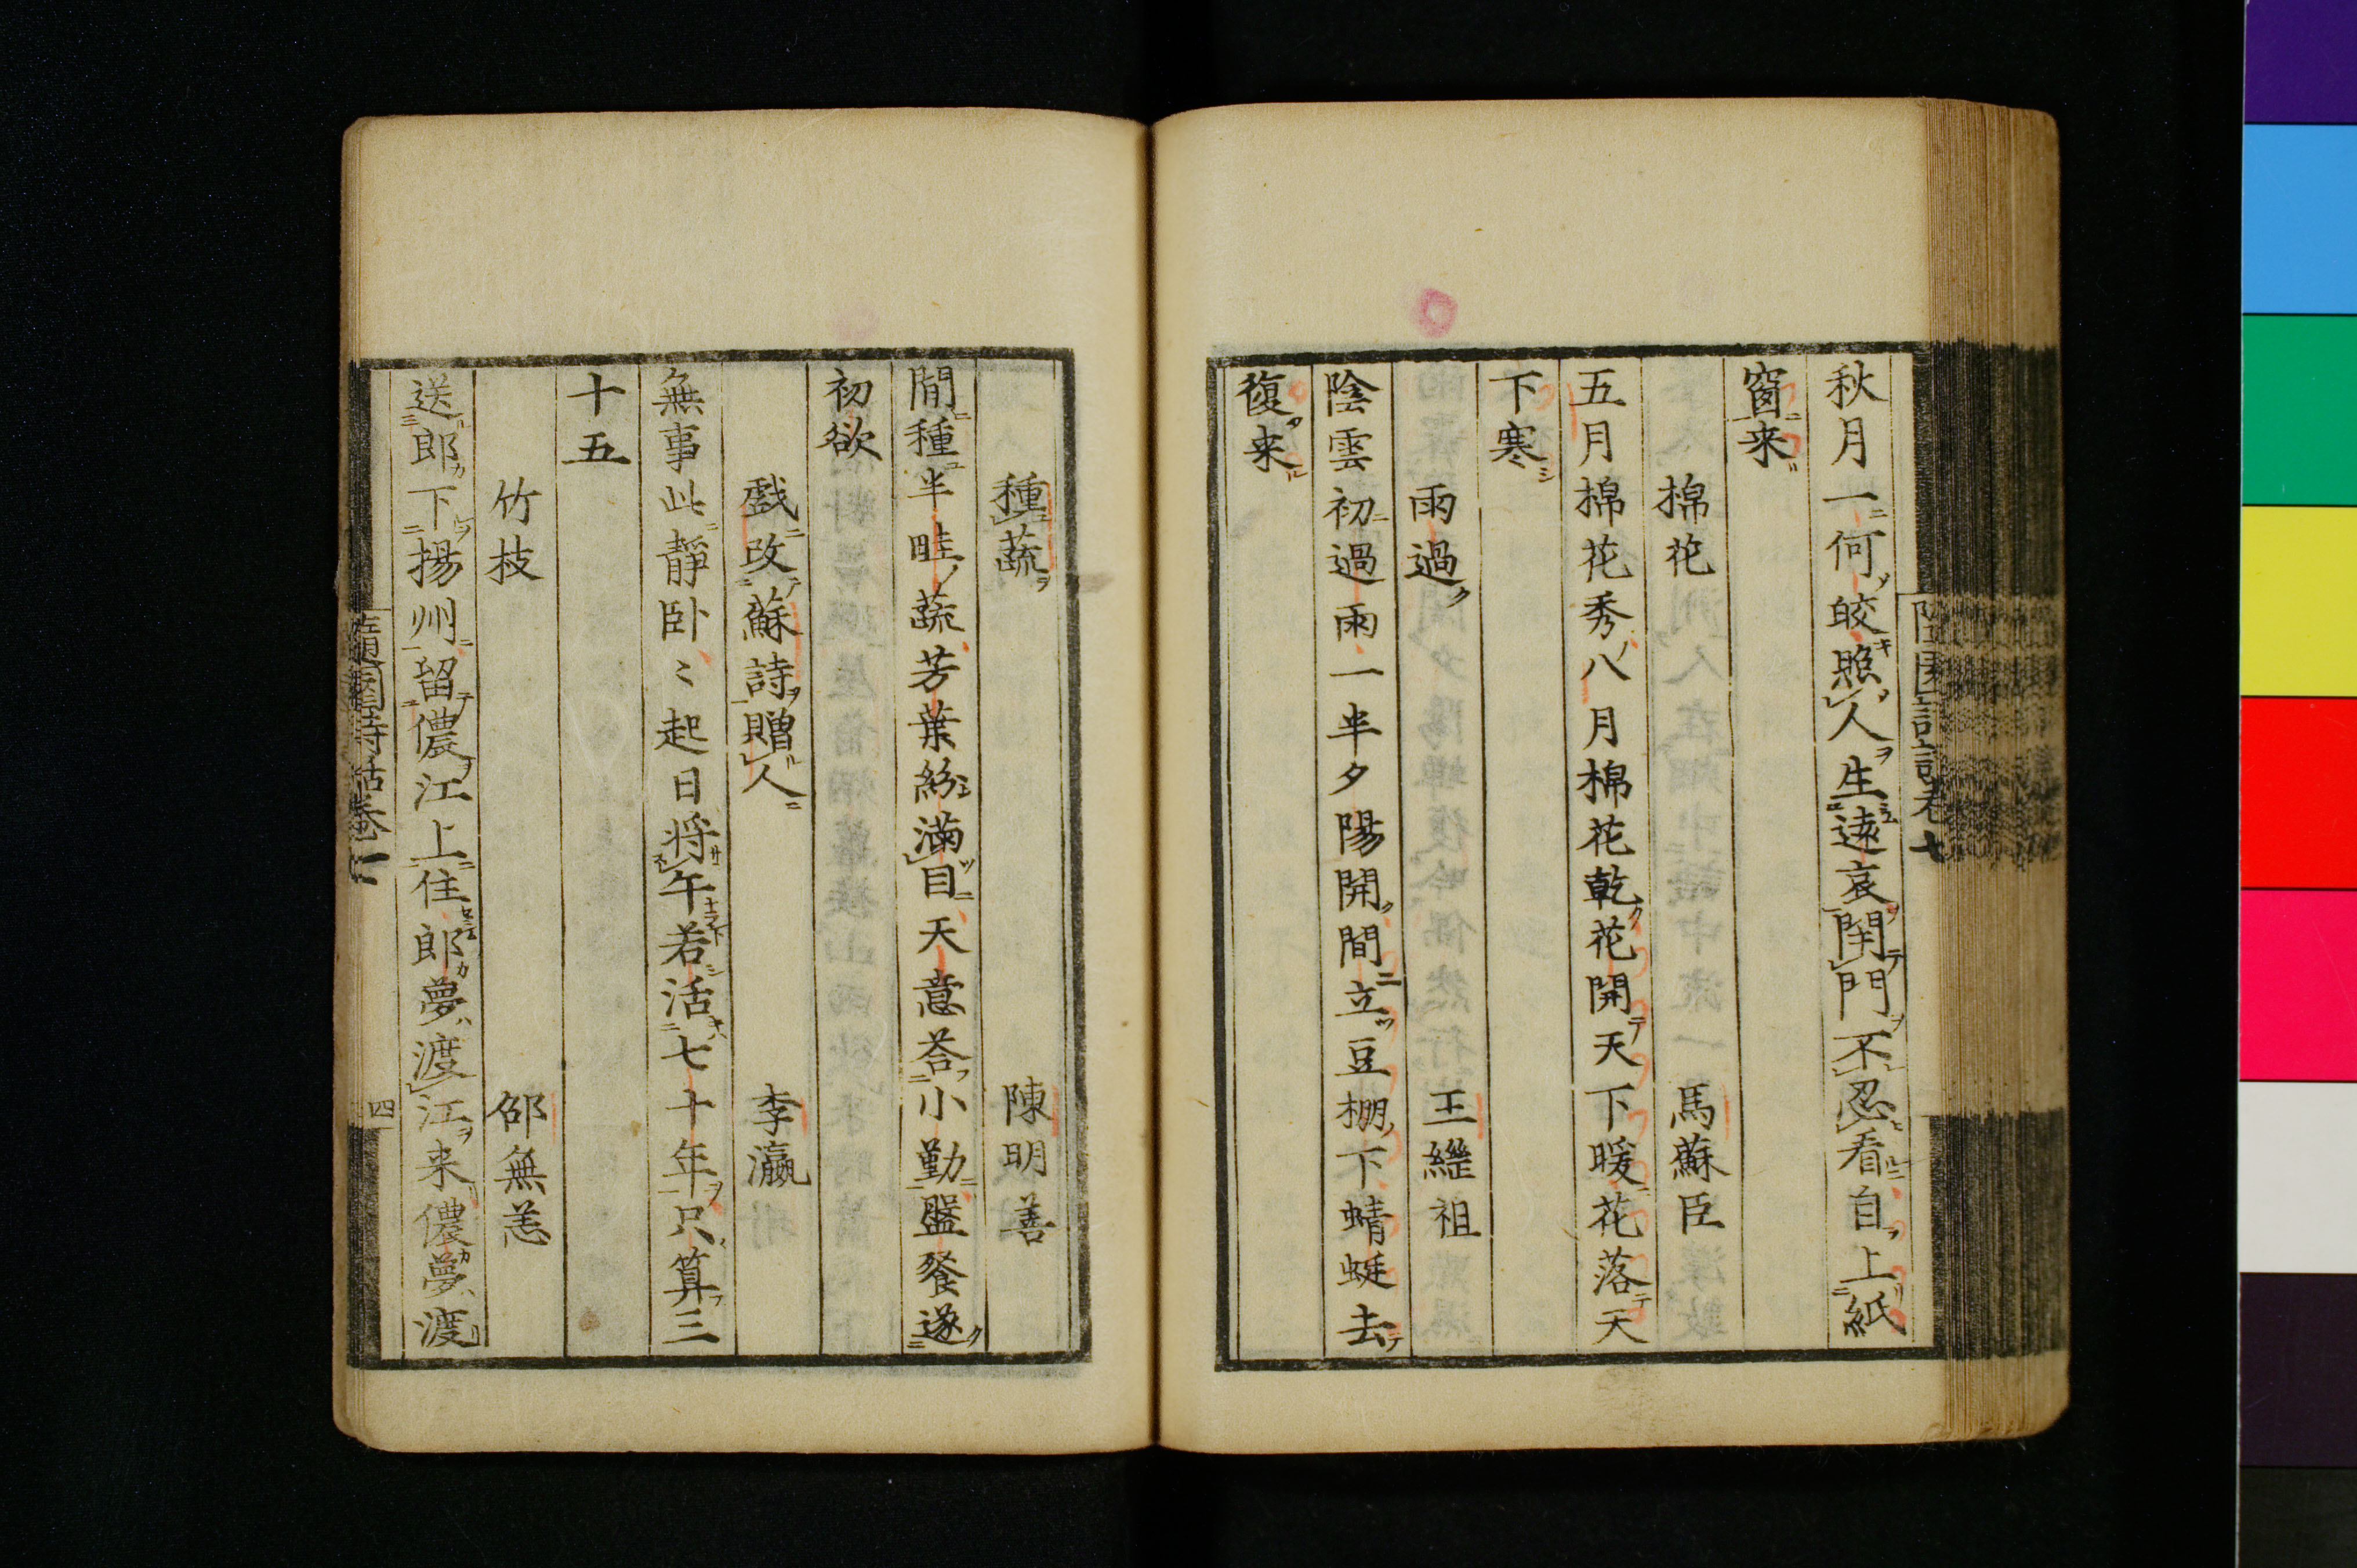 秋月一何皎照人生遠哀閉門不忍看自上紙
窗来
棉花 馬蘇臣
五月棉花秀八月棉花乾花開天下暖花落天
下寒
雨過 王繼祖
陰雲初過雨一半夕陽開間立豆棚下蜻蜓去
復来
種蔬 陳明善
閒種半畦蔬芳葉紛滿目天意荅小勤盤餐遂
初欲
戲改蘇詩贈人 李瀛
無事此靜卧〻起日将午若活七十年只算三
十五
竹枝 邵無恙
送郎下揚州留儂江上住郎夢渡江来儂夢渡
隨園詩話卷一
四